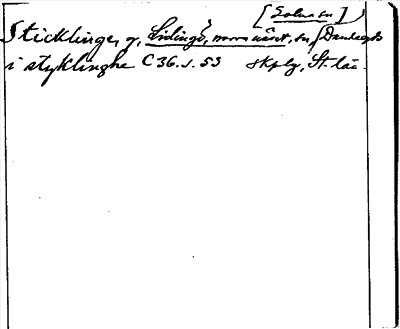 [Solna sn]
Sticklinge, g, Lidingö, sn, Danderyds
i styklinghe C 36. s. 53 skplg, St. län.